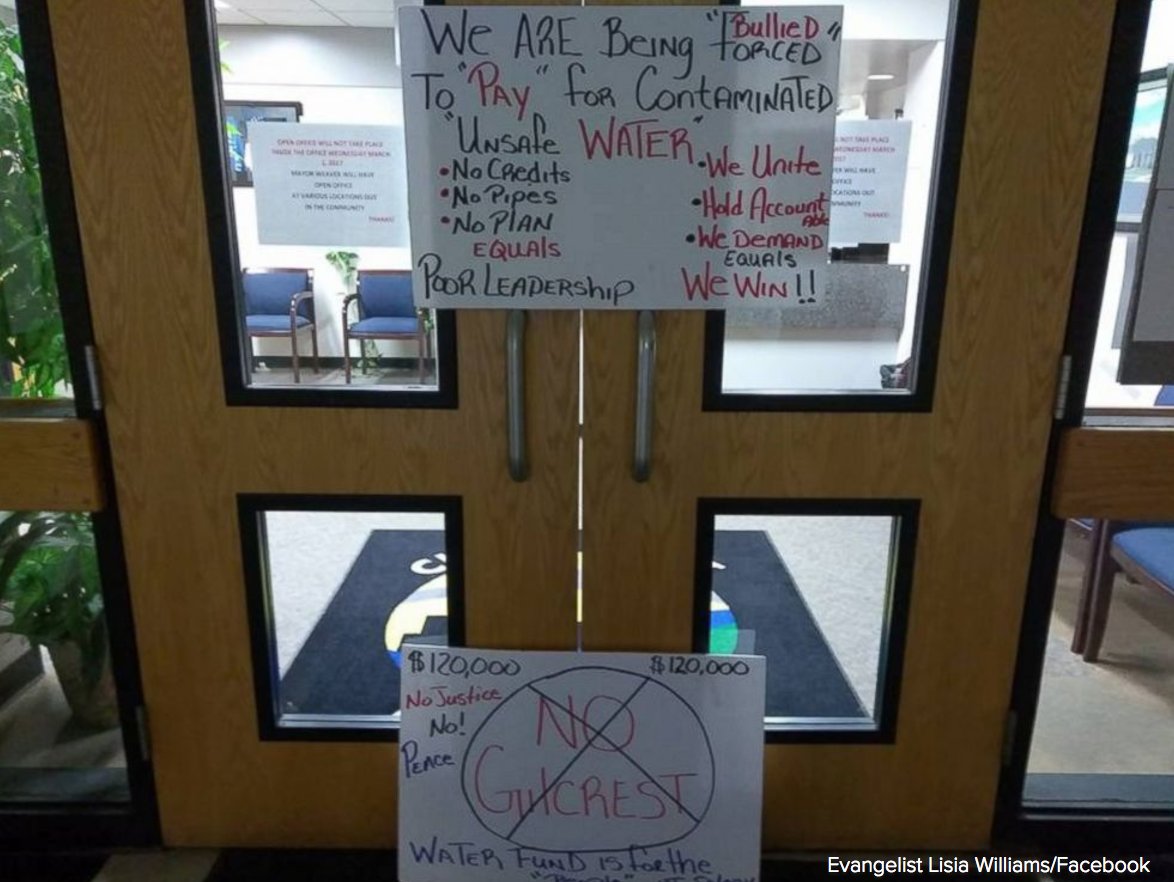 We ARE Being "Bullied"
FORCED
To "PAY" for Contaminated
"Unsafe WATER"
• No Credits
• No Pipes
• No PLAN
EQUAls
Poor Leadership
• We Unite
• Hold Account
Able
• We Demand
EQUAls
We Win!!
OPEN OFFICE WILL NOT TAKE PLACE
INSIDE THE OFFICE WEDNESDAY MARCH
1, 2017
MAYOR WEAVER WILL HAVE
OPEN OFFICE
AT VARIOUS LOCATIONS OUT
IN THE COMMUNITY
THANKS!
NOT TAKE PLACE
WEDNESDAY MARCH
2017
WILL HAVE
OFFICE
LOCATIONS OUT
COMMUNITY
THANKS!
$120,000 $120,000
No Justice
No!
Peace
NO
GilCREST
WATER FUND is for the
Evangelist Lisia Williams/Facebook